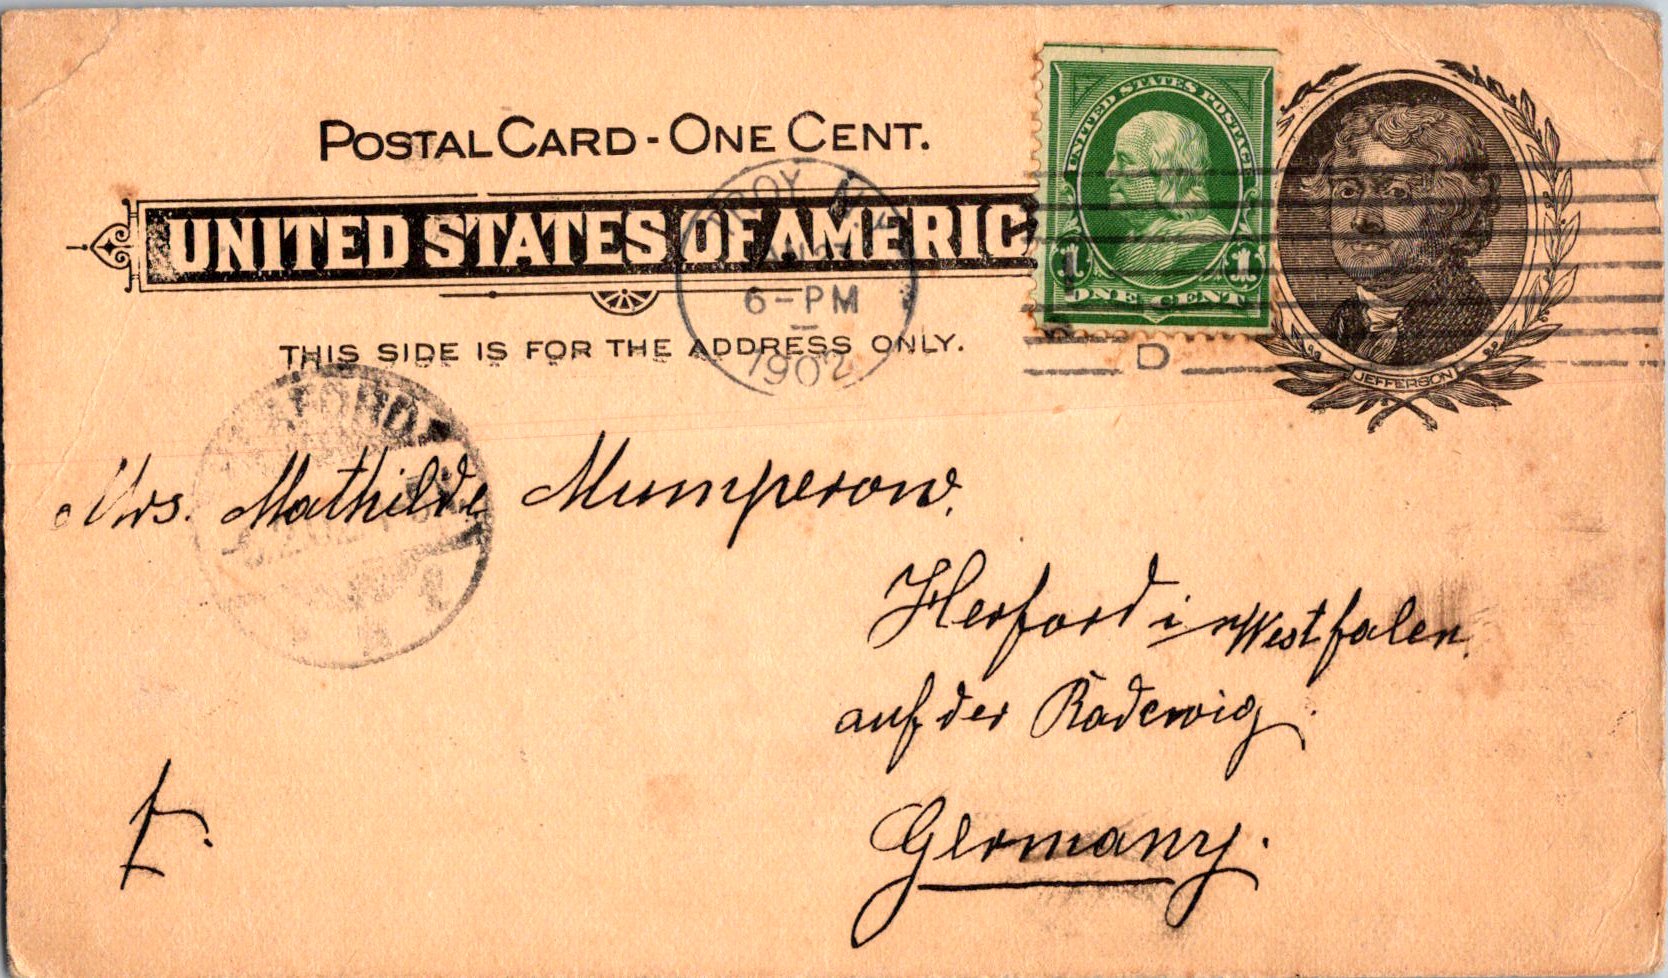 POSTAL CARD - ONE CENT.
UNITED STATES OF AMERIC
THIS SIDE IS FOR THE ADDRESS ONLY.
UNITED STATES POSTAGE
1 1
ONE CENT
JEFFERSON
TROY N.Y.
6-PM
1902
D
Mrs. Mathilde Mumperow.
Herford i. Westfalen.
auf der Radewig.
Germany.
f.